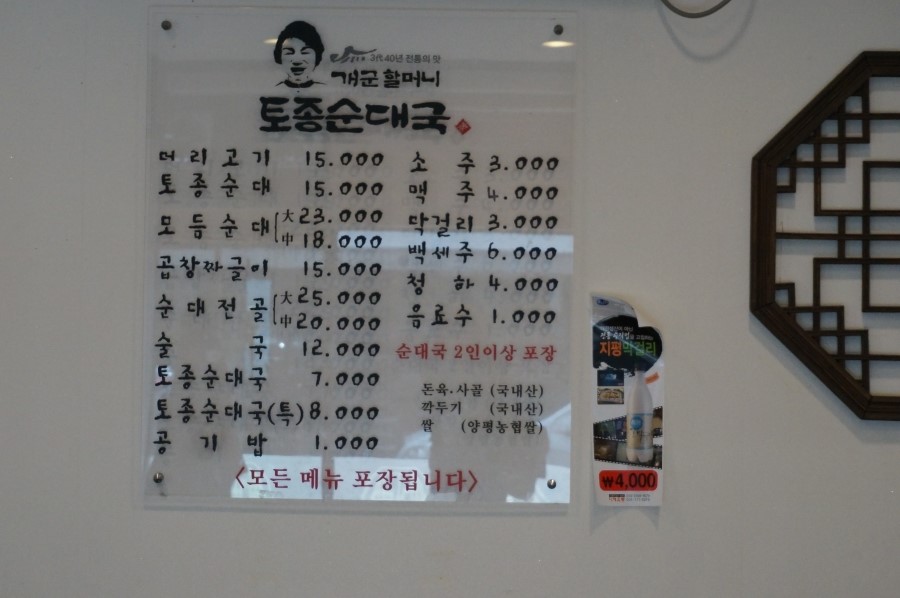 3代 40년 전통의 맛
개군 할머니
토종순대국
머리고기 15.000
토종순대 15.000
모듬순대 大 23.000
中 18.000
곱창짜글이 15.000
순대전골 大 25.000
中 20.000
술국 12.000
토종순대국 7.000
토종순대국(특) 8.000
공기밥 1.000
소주 3.000
맥주 4.000
막걸리 3.000
백세주 6.000
청하 4.000
음료수 1.000
순대국 2인이상 포장
돈육.사골 (국내산)
깍두기 (국내산)
쌀 (양평농협쌀)
<모든 메뉴 포장됩니다>
지평막걸리
₩4,000